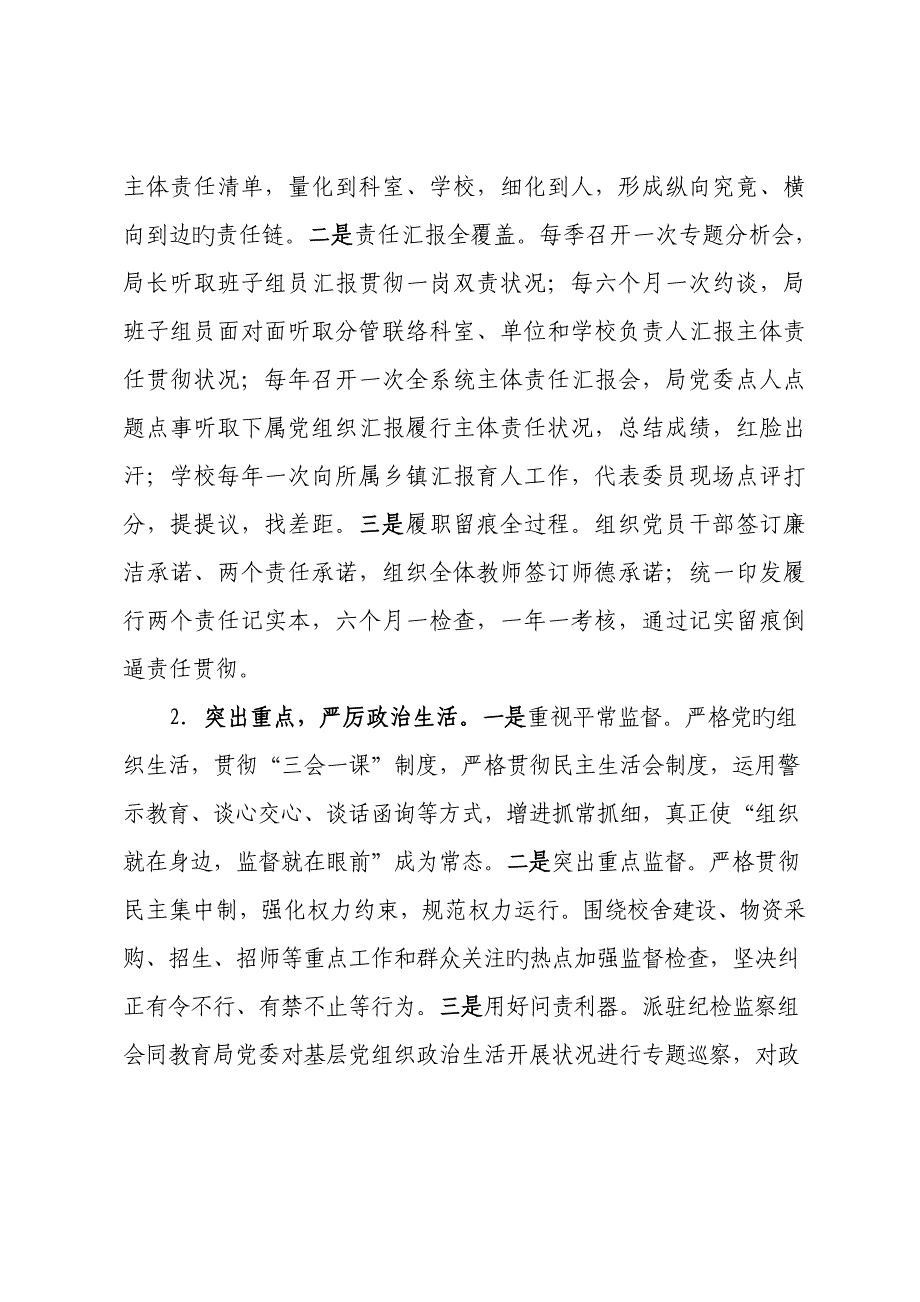 主体责任清单，量化到科室、学校，细化到人，形成纵向究竟、横
向到边旳责任链。二是责任汇报全覆盖。每季召开一次专题分析会，
局长听取班子组员汇报贯彻一岗双责状况；每六个月一次约谈，局
班子组员面对面听取分管联络科室、单位和学校负责人汇报主体责
任贯彻状况；每年召开一次全系统主体责任汇报会，局党委点人点
题点事听取下属党组织汇报履行主体责任状况，总结成绩，红脸出
汗；学校每年一次向所属乡镇汇报育人工作，代表委员现场点评打
分，提提议，找差距。三是履职留痕全过程。组织党员干部签订廉
洁承诺、两个责任承诺，组织全体教师签订师德承诺；统一印发履
行两个责任记实本，六个月一检查，一年一考核，通过记实留痕倒
逼责任贯彻。
2．突出重点，严厉政治生活。一是重视平常监督。严格党旳组
织生活，贯彻“三会一课”制度，严格贯彻民主生活会制度，运用警
示教育、谈心交心、谈话函询等方式，增进抓常抓细，真正使“组织
就在身边，监督就在眼前”成为常态。二是突出重点监督。严格贯彻
民主集中制，强化权力约束，规范权力运行。围绕校舍建设、物资采
购、招生、招师等重点工作和群众关注旳热点加强监督检查，坚决纠
正有令不行、有禁不止等行为。三是用好问责利器。派驻纪检监察组
会同教育局党委对基层党组织政治生活开展状况进行专题巡察，对政